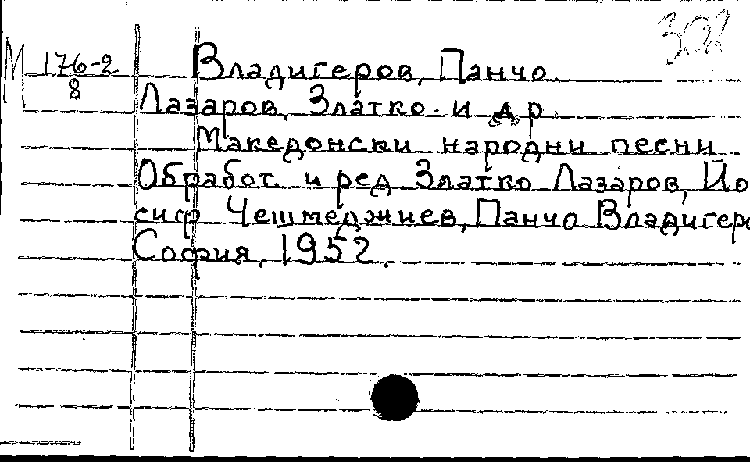 М 176-2 Владигеров, Панчо.
8
Лазаров, Златко и др
Македонски народни песни
Обработ. и ред Златко Лазаров, Йо
сиф Чешмеджиев, Панчо Владигеро
София, 1952.